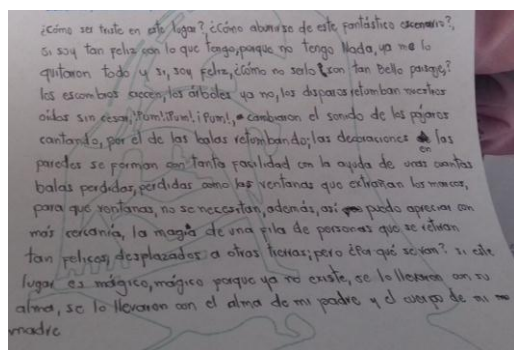 ¿Cómo ser triste en este lugar?, ¿Cómo aburrirse de este fantástico escenario?,
si soy tan feliz con lo que tengo, porque no tengo Nada, ya me lo
quitaron todo y si, soy feliz, ¿Cómo no serlo con tan Bello paisaje?
los escombros crecen, los árboles ya no, los disparos retumban nuestros
oidos sin cesar, ¡Pum!, ¡Pum!, ¡Pum!, cambiaron el sonido de los pájaros
cantando, por el de las balas retumbando; las decoraciones en las
paredes se forman con tanta facilidad con la ayuda de unas cuantas
balas perdidas, perdidas como las ventanas que extrañan los marcos,
para que ventanas, no se necesitan, además, así puedo apreciar con
más cercanía, la magia de una fila de personas que se retiran
tan felices, desplazados a otras tierras; pero ¿Por qué se van? si este
lugar es mágico, mágico porque ya no existe, se lo llevaron con su
alma, se lo llevaron con el alma de mi padre y el cuerpo de mi
madre